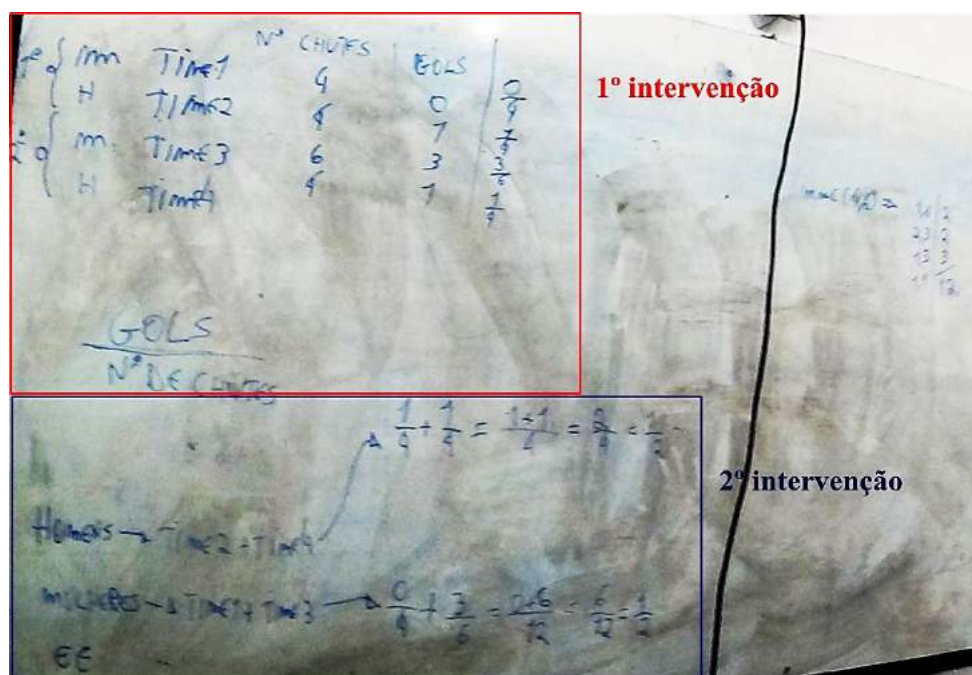 Nº CHUTES GOLS
m TIME1 4 0 0/4
H TIME2 4 1 1/4
m. TIME3 6 3 3/6
H TIME4 4 1 1/4
1º intervenção
GOLS
Nº DE CHUTES
1/4 + 1/4 = 1+1/4 = 2/4 = 1/2
2º intervenção
HOMENS → TIME2 + TIME4
MULHERES → TIME1 + TIME3 → 0/4 + 3/6 = 0+6/12 = 6/12 = 1/2
EE